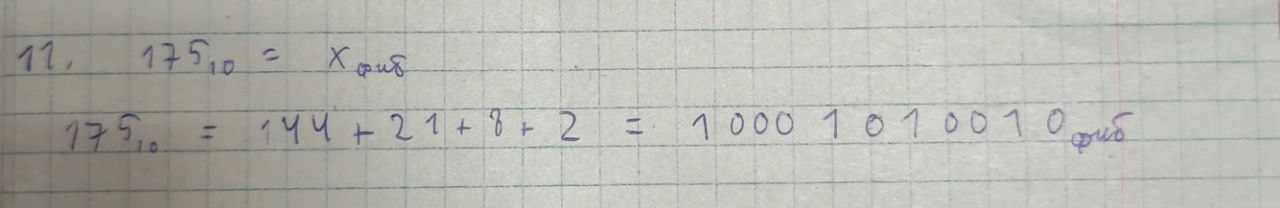 11. 175₁₀ = x фиб
175₁₀ = 144 + 21 + 8 + 2 = 10001010010 фиб